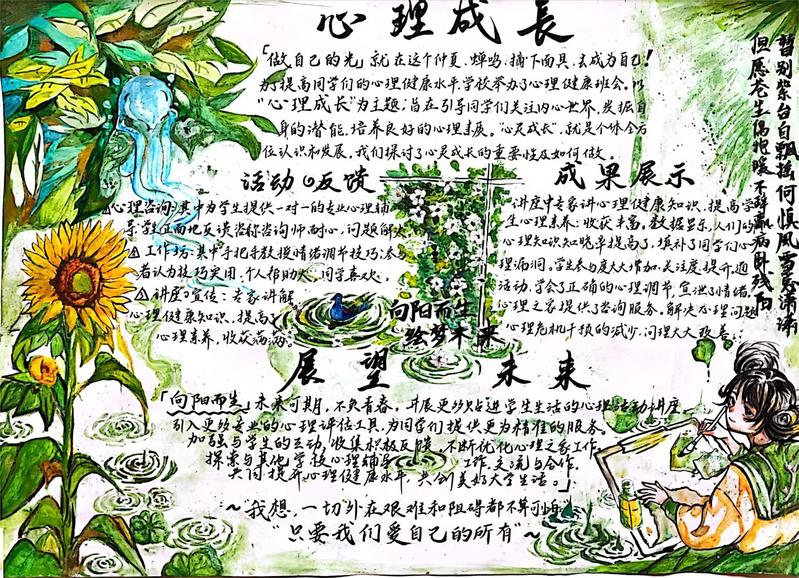 心理成長
「做自己的光」就在这个仲夏、蝉鸣、摘下面具,去成为自己!
为了提高同学们的心理健康水平,学校举办了心理健康班会。以
"心理成长"为主题,旨在引导同学们关注内心世界,发掘自
身的潜能,培养良好的心理素质。"心灵成长",就是个体全方
位认识和发展,我们探讨了心灵成长的重要性及如何做。
暂别紫台自飘摇何惧风雪惹潇潇
但愿苍生俱饱暖不辞羸病卧残阳
活动与反馈
心理咨询:其中为学生提供一对一的专业心理辅
导,学生正面地反馈咨询师耐心,问题解决
工作坊:其中手把手教授情绪调节技巧,参与
者认为技巧实用,个人帮助大,同学喜欢
讲座与宣传:专家讲解
心理健康知识,提高了
心理素养,收获满满。
向阳而生
绘梦未来
成果展示
讲座中专家讲心理健康知识,提高学
生心理素养;收获丰富,数据显示,人们的
心理知识知晓率提高了,填补了同学们心
理漏洞,学生参与度大大增加,关注度提升,通
活动,学会了正确的心理调节,宣泄了情绪,
心理之家提供了咨询服务,解决心理问题
心理危机干预的减少,问理大大改善。
展望未来
「向阳而生」未来可期,不负青春,开展更多贴近学生生活的心理活动讲座,
引入更多专业的心理评估工具,为同学们提供更为精准的服务。
加强与学生的互动,收集积极反馈,不断优化心理之家工作,
探索与其他学校心理辅导 工作交流与合作,
共同提升心理健康水平,共创美好大学生活。」
~"我想,一切外在艰难和阻碍都不算可惜
只要我们爱自己的所有"~